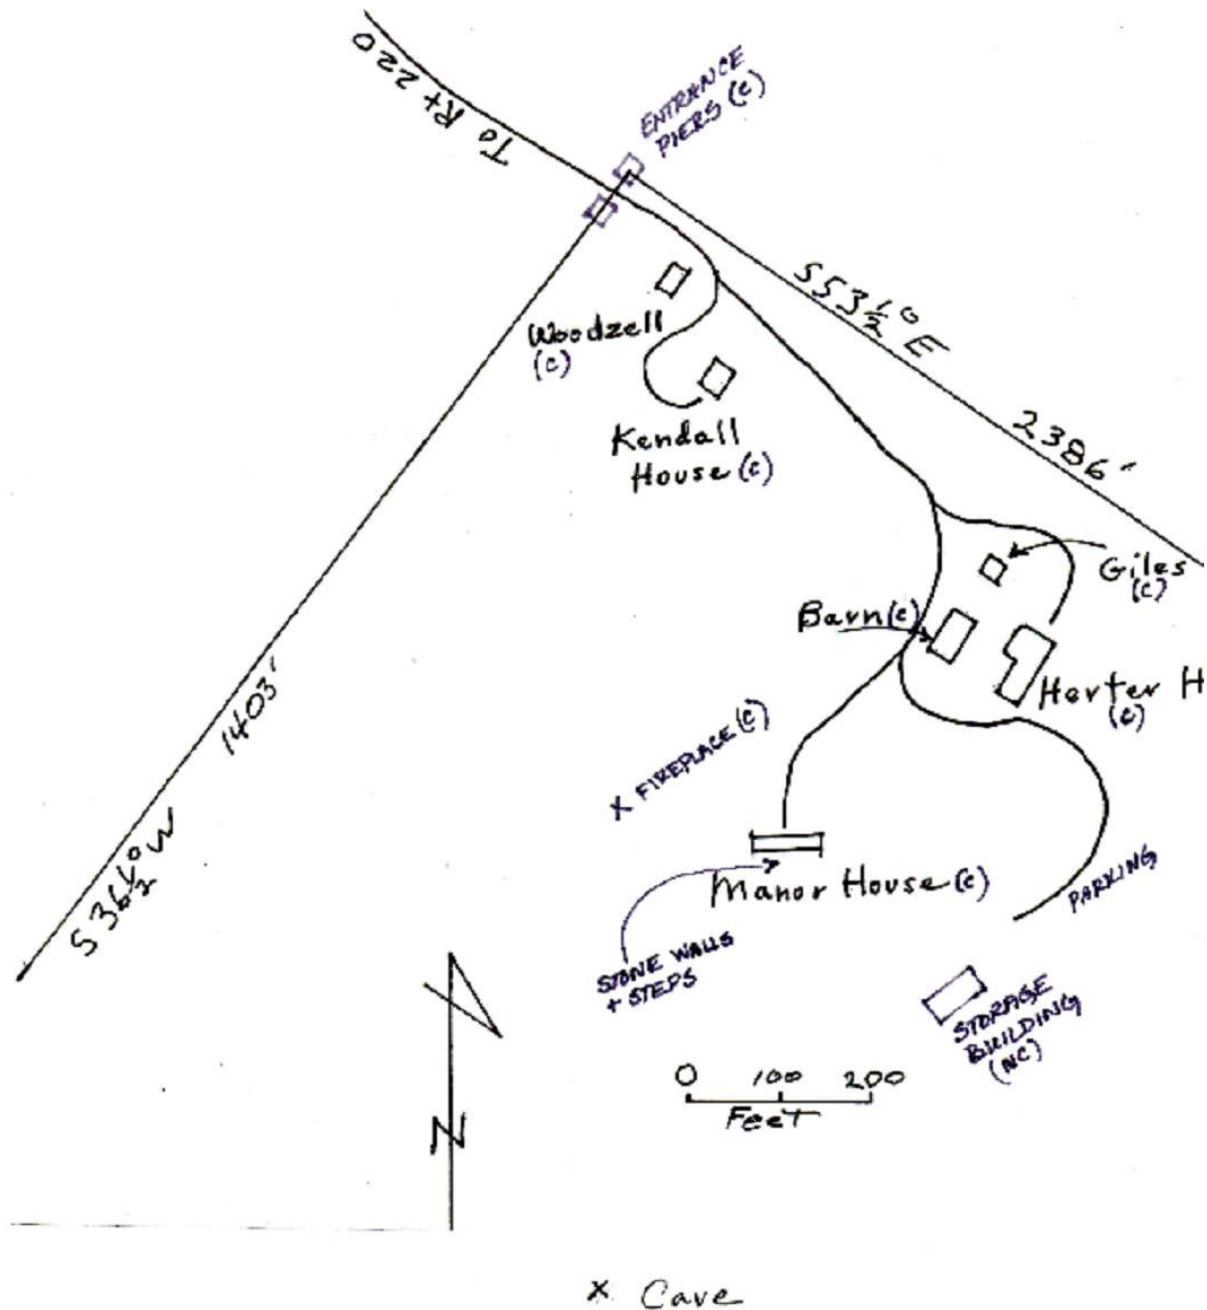 To Rt 220
ENTRANCE
PIERS (C)
S 53 ½° E
2386'
Woodzell
(C)
Kendall
House (C)
Giles
(C)
Barn (C)
Herter H
(C)
1403'
S 36 ½° W
X FIREPLACE (C)
Manor House (C)
PARKING
STONE WALLS
+ STEPS
STORAGE
BUILDING
(NC)
0 100 200
Feet
N
X Cave